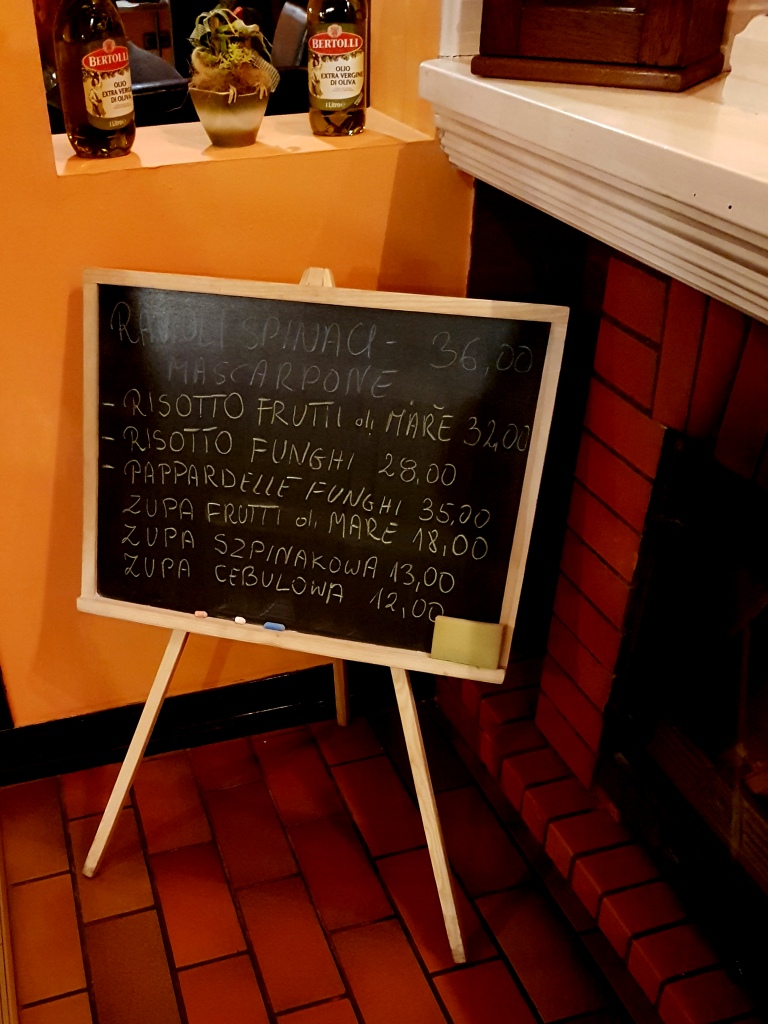 BERTOLLI
OLIO
EXTRA VERGINE
DI OLIVA
1 Litro
BERTOLLI
OLIO
EXTRA VERGINE
DI OLIVA
1 Litro
RAVIOLI SPINACI - 36,00
MASCARPONE
- RISOTTO FRUTTI di MARE 32,00
- RISOTTO FUNGHI 28,00
- PAPPARDELLE FUNGHI 35,00
ZUPA FRUTTI di MARE 18,00
ZUPA SZPINAKOWA 13,00
ZUPA CEBULOWA 12,00